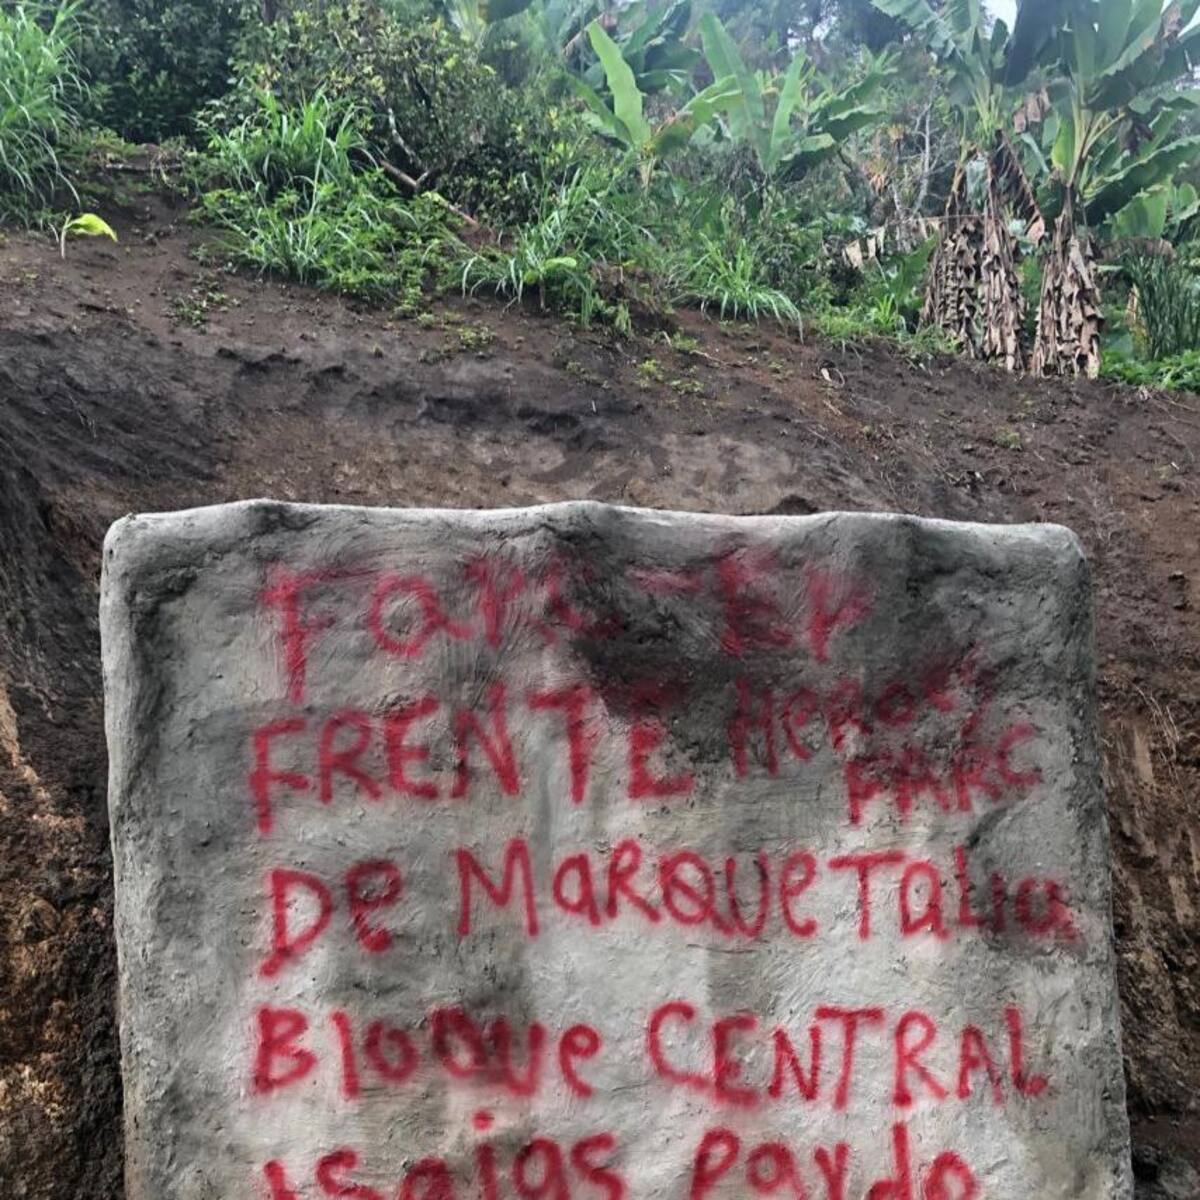 Farc-Ep
FRENTE Heroes
FARC
De MaRQUeTalia
BloQue CENTRAL
Isaias Pardo